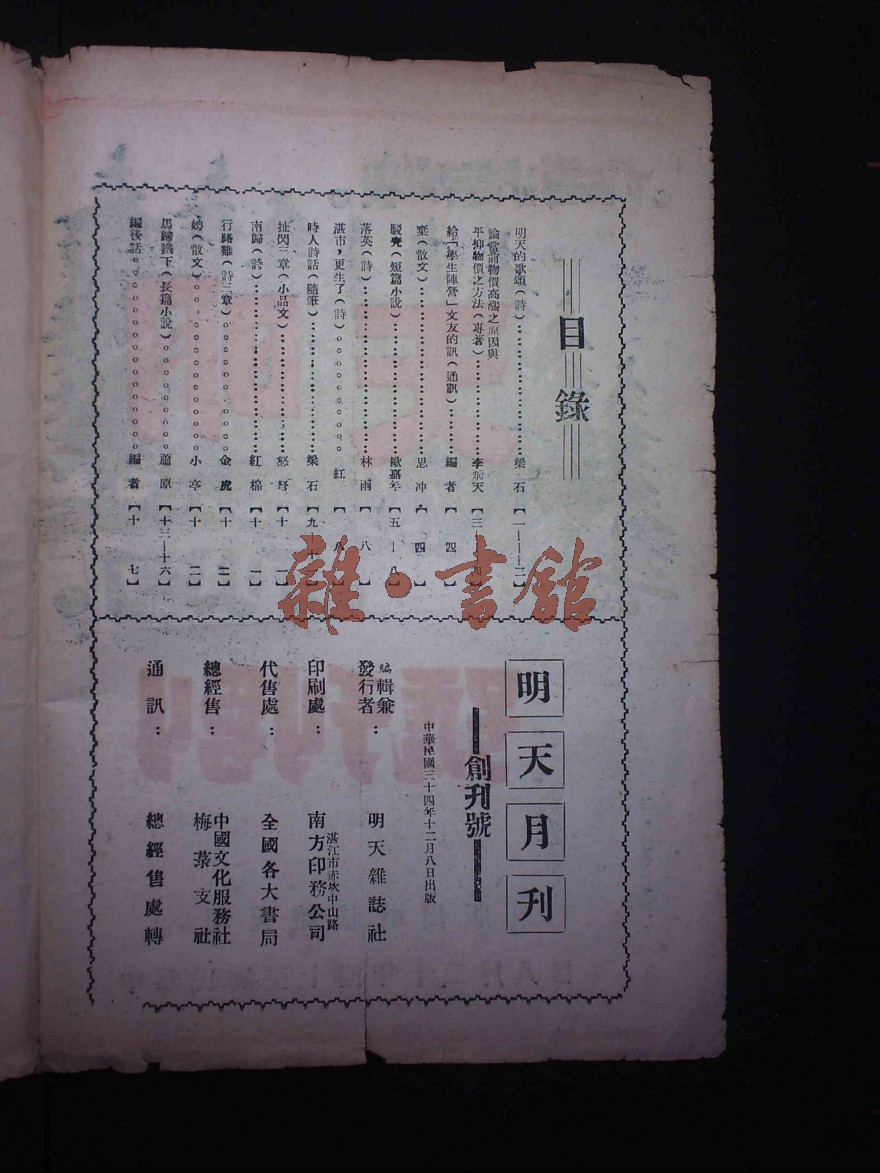 目錄
明天的歌頌(詩)…………梁石【一——二】
論當前物價高漲之原因與
平抑物價之方法(專著)…………李飛天【三
給「學生陣營」文友的訊(通訊)…………編者【四】
棄(散文)…………思冲【四】
(短篇小說)…………歐嘉年【五—八】
落英(詩)…………林雨【八】
湛市,更生了(詩)。。。。。。。。紅【八
時人詩話(隨筆)…………梁石【九
扯閃三章(小品文)…………怒【十一
南歸(詩)…………紅棉【十一】
行路難(詩三章)。。。。。。。。金虎【十二】
(散文)。。。。。。。。小亭【十二】
馬蹄鐵下(長篇小說)。。。。。。。。蕭原【十三—十六】
編後話。。。。。。。。編者【十七】
雜·書館
明天月刊
創刊號
中華民國三十四年十二月八日出版
編輯兼
發行者:明天雜誌社
印刷處:南方印務公司
湛江市赤坎中山路
代售處:全國各大書局
總經售:中國文化服務社
梅菉支社
通訊:總經售處轉